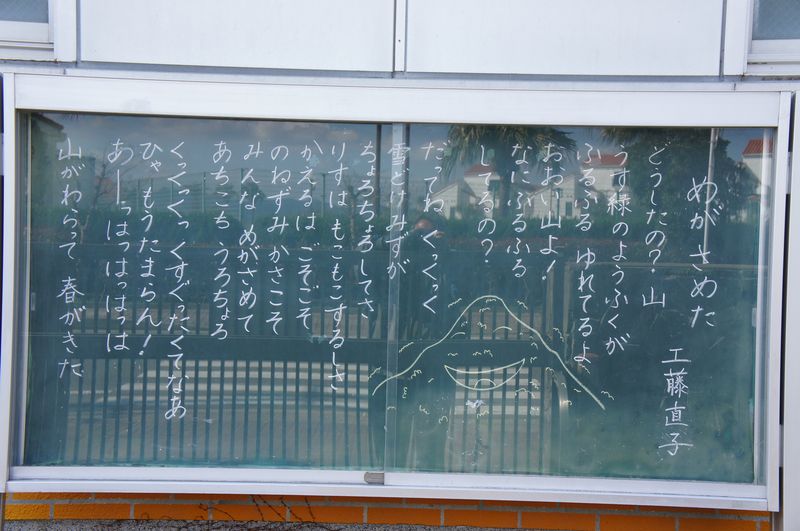 めがさめた
工藤直子
どうしたの？山
うす緑のようふくが
ふるふる ゆれてるよ
おおい山よ！
なにふるふる
してるの？
だってね くっくっく
雪どけみずが
ちょろちょろしてさ
りすは もこもこするしさ
かえるは ごそごそ
のねずみ かさこそ
みんな めがさめて
あちこち うろちょろ
くっくっくっ くすぐったくてなあ
ひゃ もうたまらん！
あーっはっはっはっは
山がわらって 春がきた